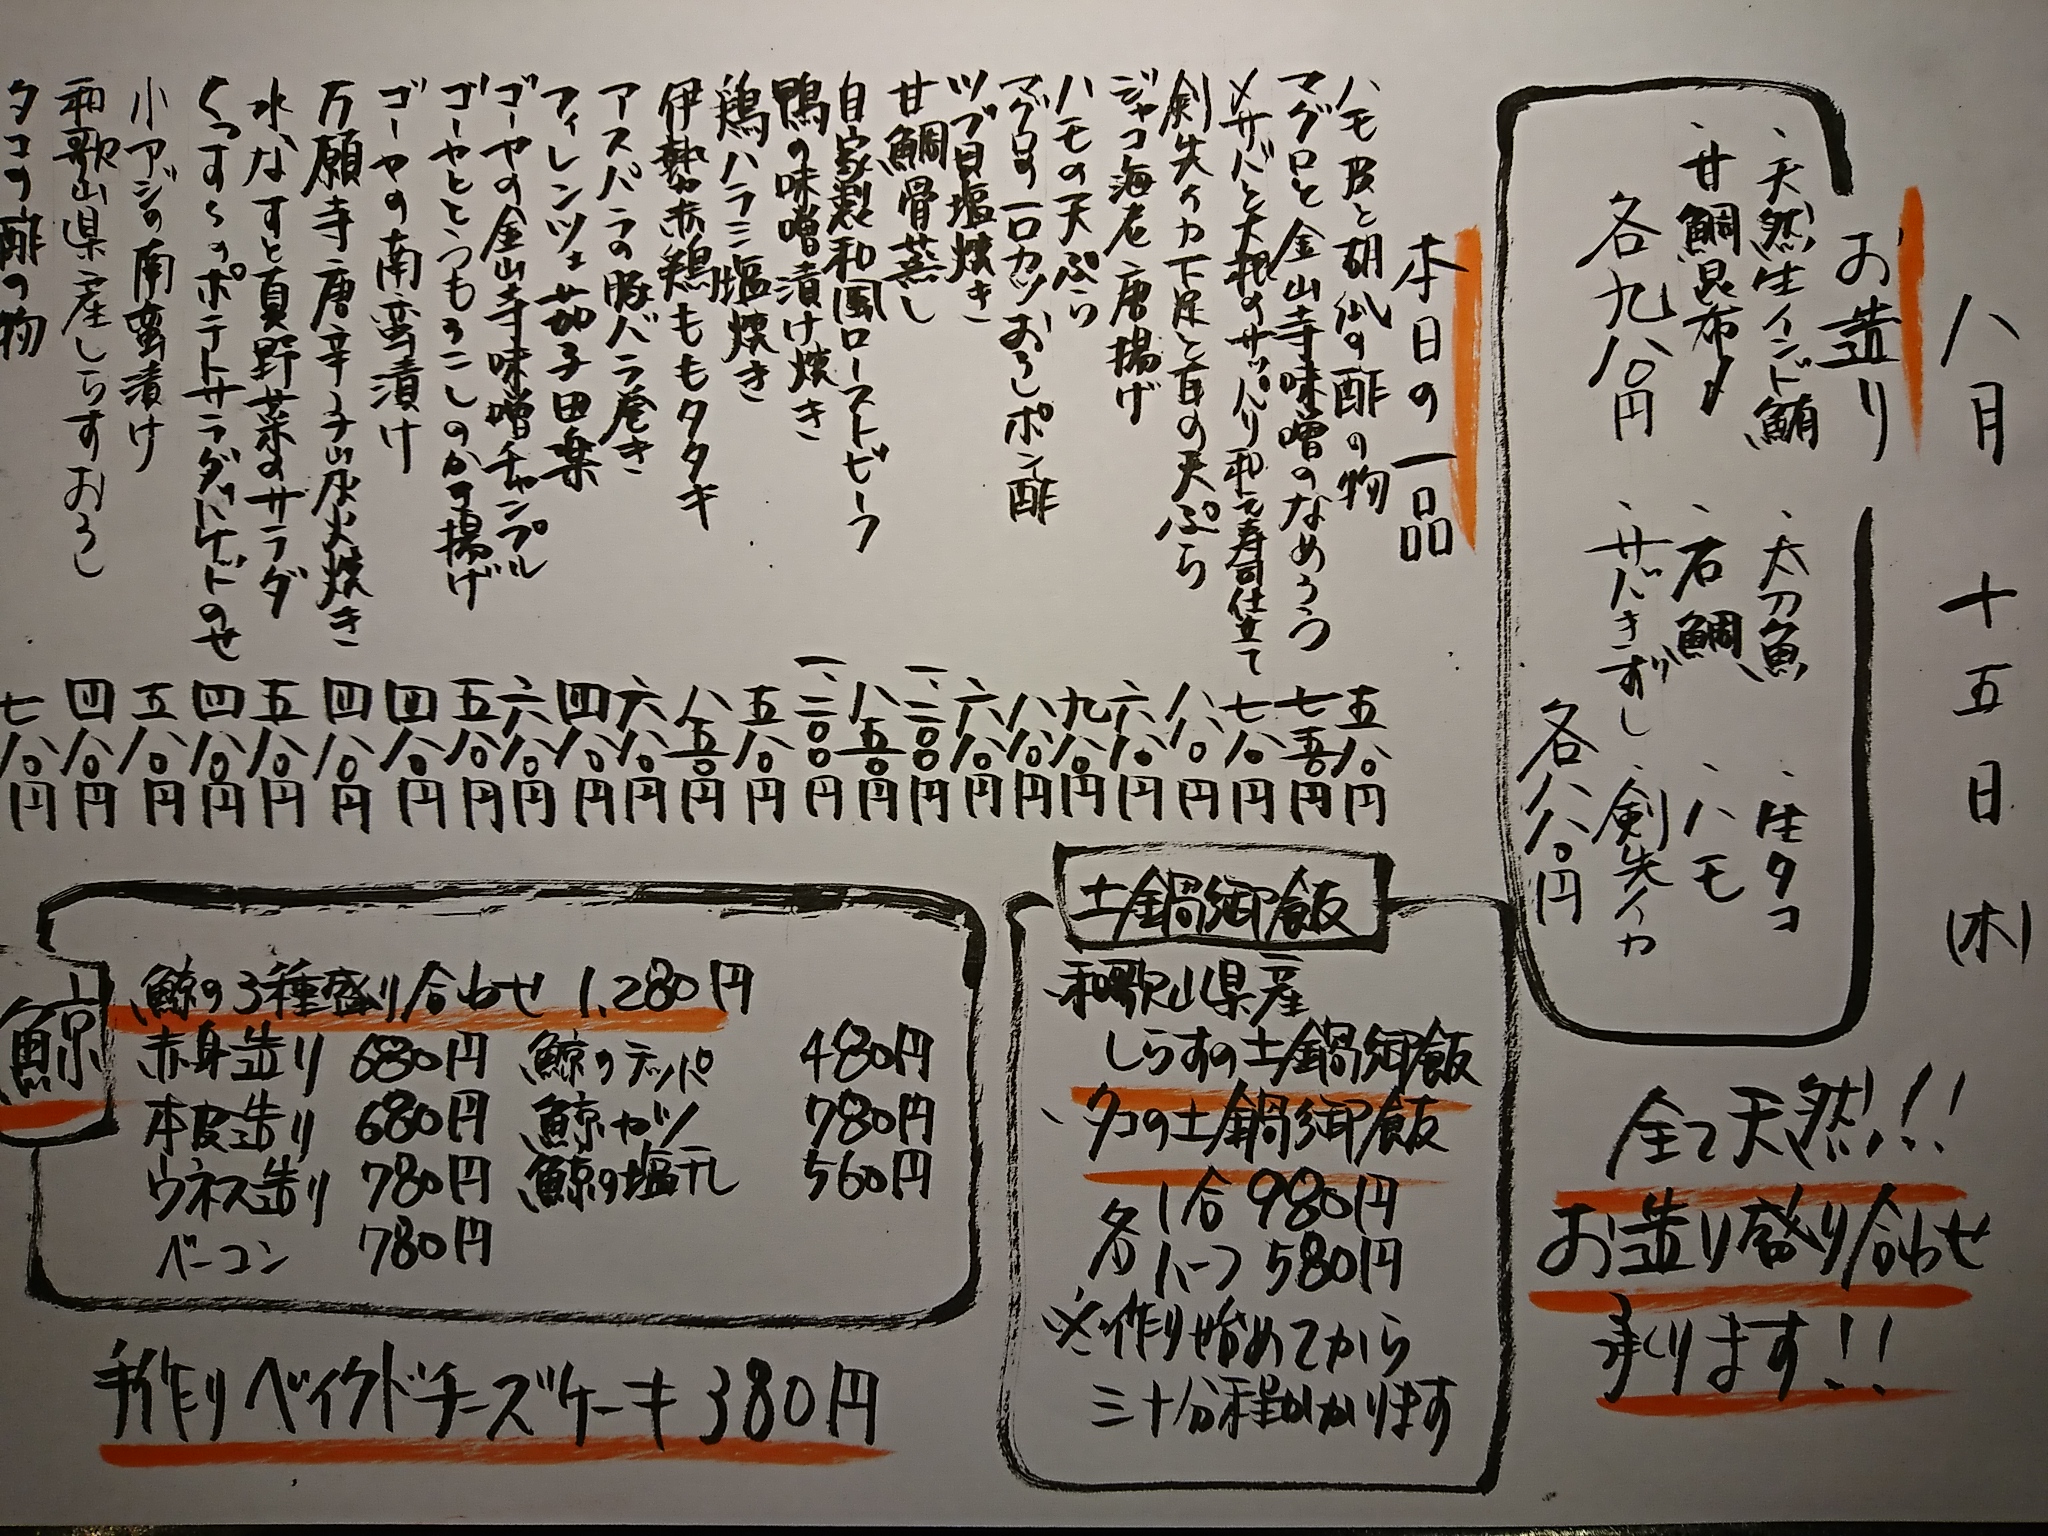 八月十五日(木)
お造り
、天然生インド鮪 、太刀魚 、生タコ
、甘鯛昆布〆 、石鯛 、ハモ
各九八〇円 、サバきずし 、剣先イカ
各八八〇円
全て天然!!
お造り盛り合わせ
承ります!!
本日の一品
ハモ皮と胡瓜の酢の物 五八〇円
マグロと金山寺味噌のなめろう 七五〇円
〆サバと大根のサッパリ和え寿司仕立て 七八〇円
剣先イカ下足と茸の天ぷら 八八〇円
ジャコ海老唐揚げ 六八〇円
ハモの天ぷら 九八〇円
マグロの一口カツおろしポン酢 八八〇円
ツブ貝塩焼き 六八〇円
甘鯛骨蒸し 一、二〇〇円
自家製和風ローストビーフ 八五〇円
鴨の味噌漬け焼き 一、二〇〇円
鶏ハラミ塩焼き 五八〇円
伊勢赤鶏ももタタキ 八五〇円
アスパラの豚バラ巻き 六八〇円
フィレンツェ茄子田楽 四八〇円
ゴーヤの金山寺味噌チャンプル 六八〇円
ゴーヤととうもろこしのかき揚げ 五八〇円
ゴーヤの南蛮漬け 四八〇円
万願寺唐辛子炭火焼き 四八〇円
水なすと真野菜のサラダ 五八〇円
くっすんのポテトサラダバゲットのせ 四八〇円
小アジの南蛮漬け 五八〇円
和歌山県産しらすおろし 四八〇円
タコの酢の物 七八〇円
土鍋御飯
、和歌山県産
しらすの土鍋御飯
、タコの土鍋御飯
各 1合 980円
ハーフ 580円
※作り始めてから
三十分程かかります
鯨
鯨の3種盛り合わせ 1,280円
赤身造り 680円 鯨のテッパ 480円
本皮造り 680円 鯨カツ 780円
ウネス造り 780円 鯨の塩干し 560円
ベーコン 780円
手作りベイクドチーズケーキ 380円